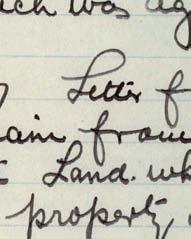 was ag
Letter f
from
Land. wh
property,